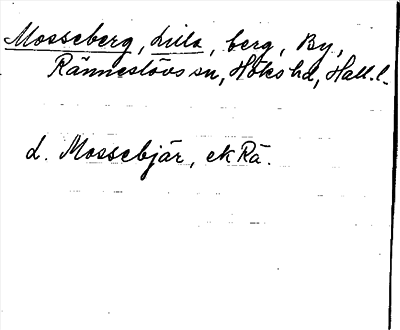 Mosseberg, Lilla, berg, By,
Ränneslövs sn, Höks hd, Hall. l.
d. Mossebjär, ek Rä.